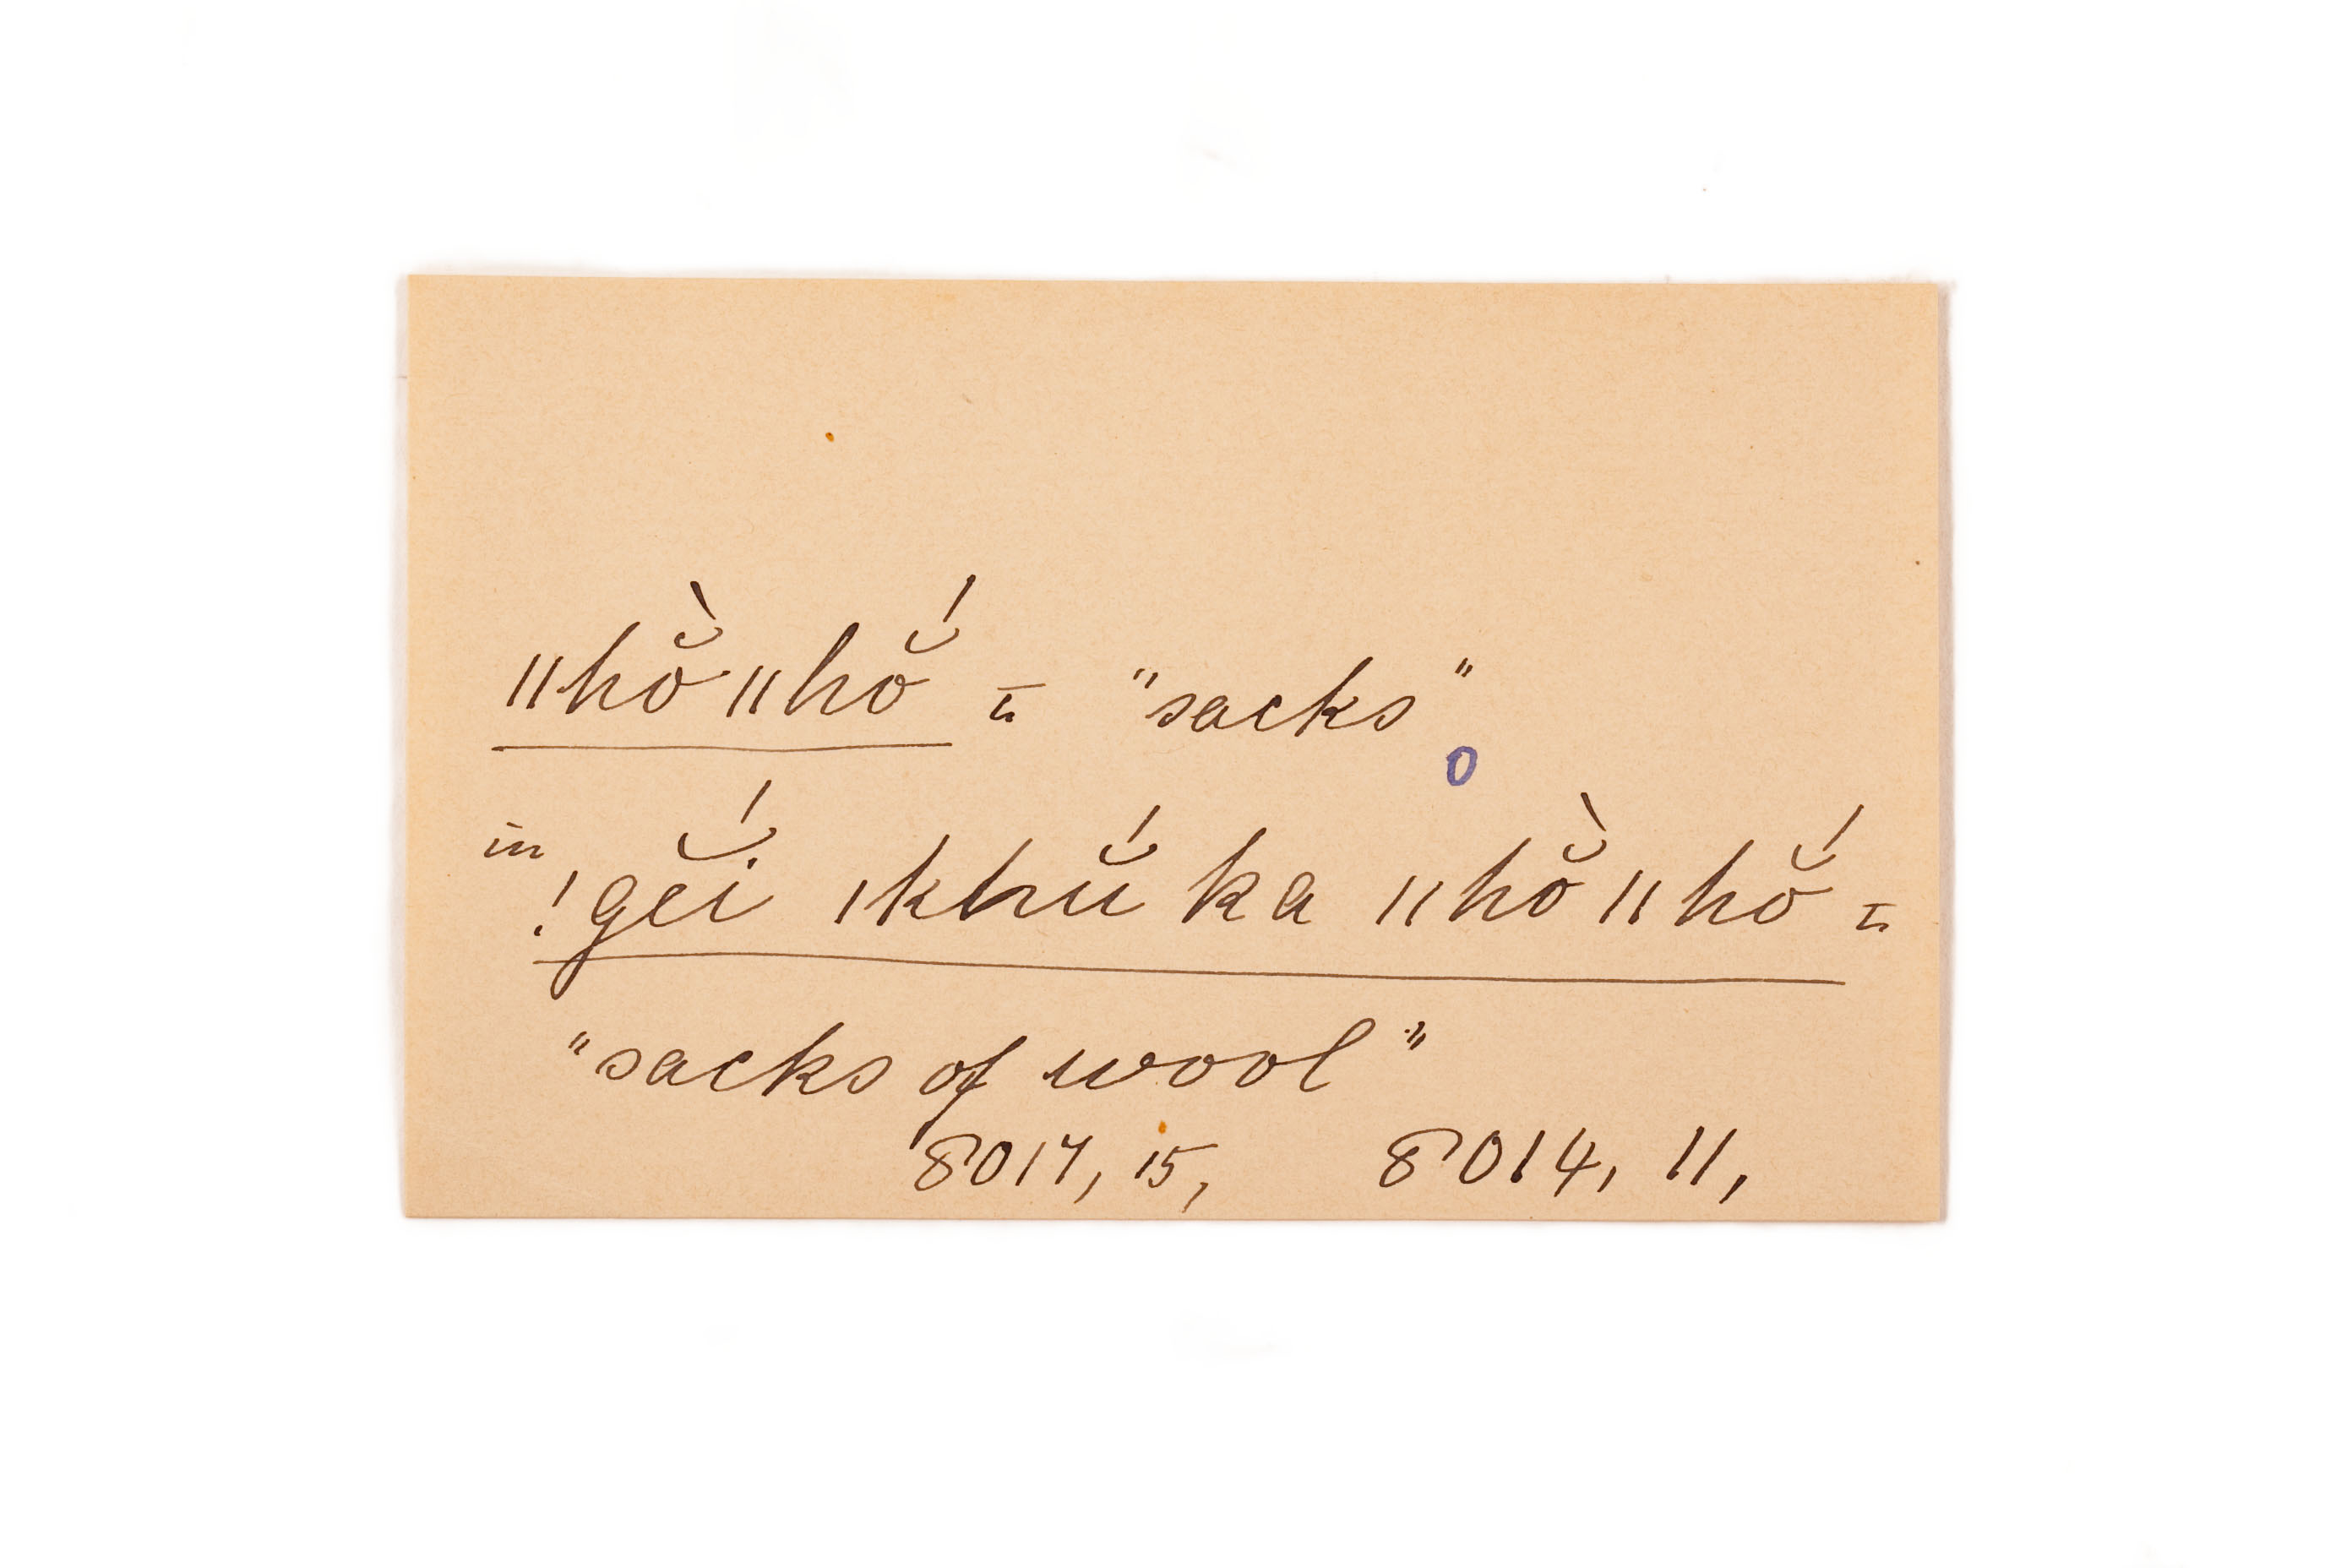 ǁhŏ̀ǁhŏ́ = "sacks"
0
in !gĕ́i ǀkhŭ́ ka ǁhŏ̀ǁhŏ́ =
"sacks of wool"
8017, 15, 8014, 11,